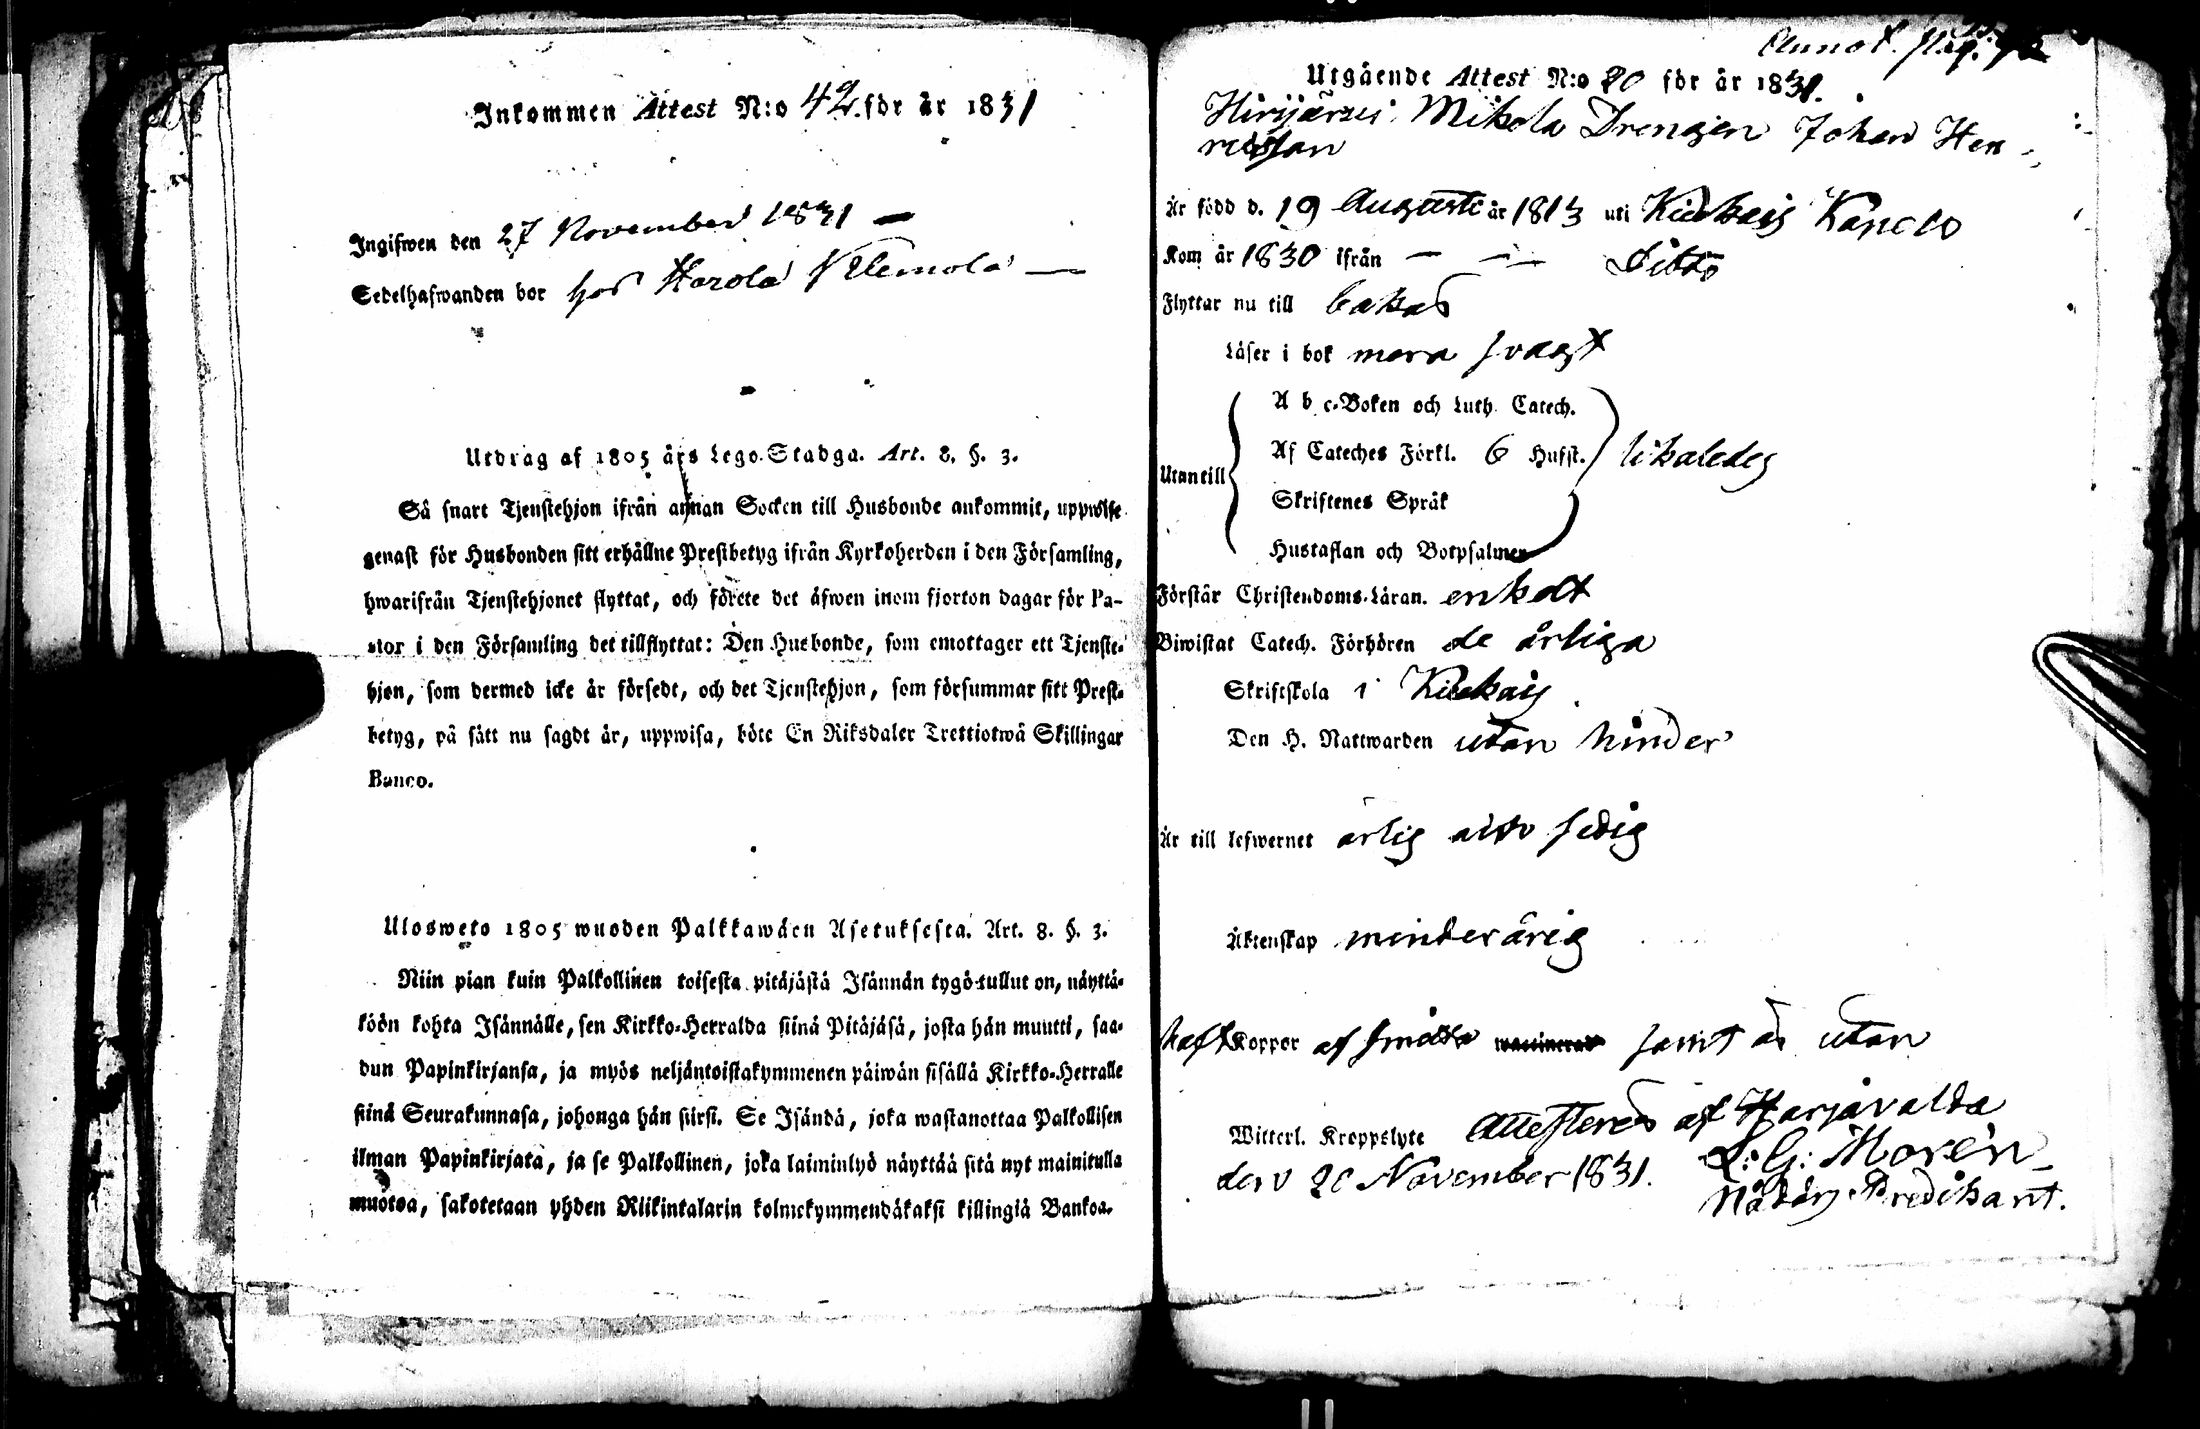 Inkommen Attest N:o 42. för år 1831
Ingifwen den 27 November 1831 —
Sedelhafwanden bor hos Harola Klemola —
Utdrag af 1805 års Lego-Stadga. Art. 8. §. 3.
Så snart Tjenstehjon ifrån annan Socken till Husbonde ankommit, uppwise
genast för Husbonden sitt erhållne Prestbetyg ifrån Kyrkoherden i den Församling,
hwarifrån Tjenstehjonet flyttat, och förete det äfwen inom fjorton dagar för Pa-
stor i den Församling det tillflyttat: Den Husbonde, som emottager ett Tjenste-
hjon, som dermed icke är försedt, och det Tjenstehjon, som försummar sitt Prest-
betyg, på sätt nu sagdt är, uppwisa, böte En Riksdaler Trettiotwå Skillingar
Banco.
Ulosweto 1805 wuoden Palkkawäen Asetuksesta. Art. 8. §. 3.
Niin pian kuin Palkollinen toisesta pitäjästä Isännän tygö tullut on, näyttä-
köön kohta Isännälle, sen Kirkko-Herralda siinä Pitäjäsä, josta hän muutti, saa-
dun Papinkirjansa, ja myös neljäntoistakymmenen päiwän sisällä Kirkko-Herralle
siinä Seurakunnasa, johonga hän siirsi. Se Isändä, joka wastanottaa Palkollisen
ilman Papinkirjata, ja se Palkollinen, joka laiminlyö näyttää sitä nyt mainitulla
muotoa, sakotetaan yhden Riikintalarin kolmekymmendäkaksi killingiä Bankoa.
Annot. pag.
Utgående Attest N:o 20 för år 1831.
Mikola Drengen Johan Hen-
Är född d. 19 Augusti år 1813 uti
Kom år 1830 ifrån — — Ditto
Flyttar nu till bakas
Läser i bok mera svagt
A b c-Boken och Luth. Catech.
Utantill Af Cateches Förkl. 6 Hufst. likaledes
Skriftenes Språk
Hustaflan och Botpsalmer
Förstår Christendoms-Läran. enkelt
Biwistat Catech. Förhören de årliga
Skriftskola i
Den H. Nattwarden utan hinder
Är till lefwernet ärlig och sedig
Äktenskap minderårig
haft Koppor af samt är utan
Witterl. Kroppslyte Attesteras af Harjavalda
den 20 November 1831. L: G: Morén
Predikant.